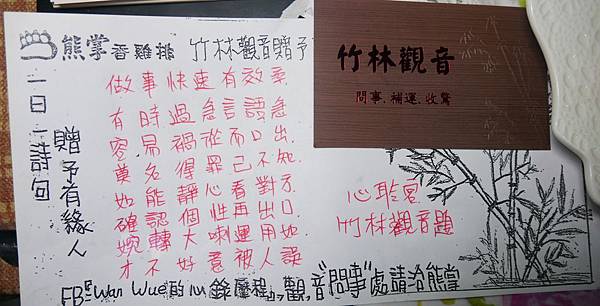 熊掌香雞排 竹林觀音贈予
一日一詩句
贈予有緣人
做事快速有效率
有時過急言語急
容易禍從而口出
莫名得罪己不知
如能靜心看對方
確認個性再出口
婉轉大喇運用地
才不好意被人誤
心聆客
竹林觀音題
FB：Wan Wue的心錄歷程
觀音"問事"處請洽熊掌
竹林觀音
問事.補運.收驚